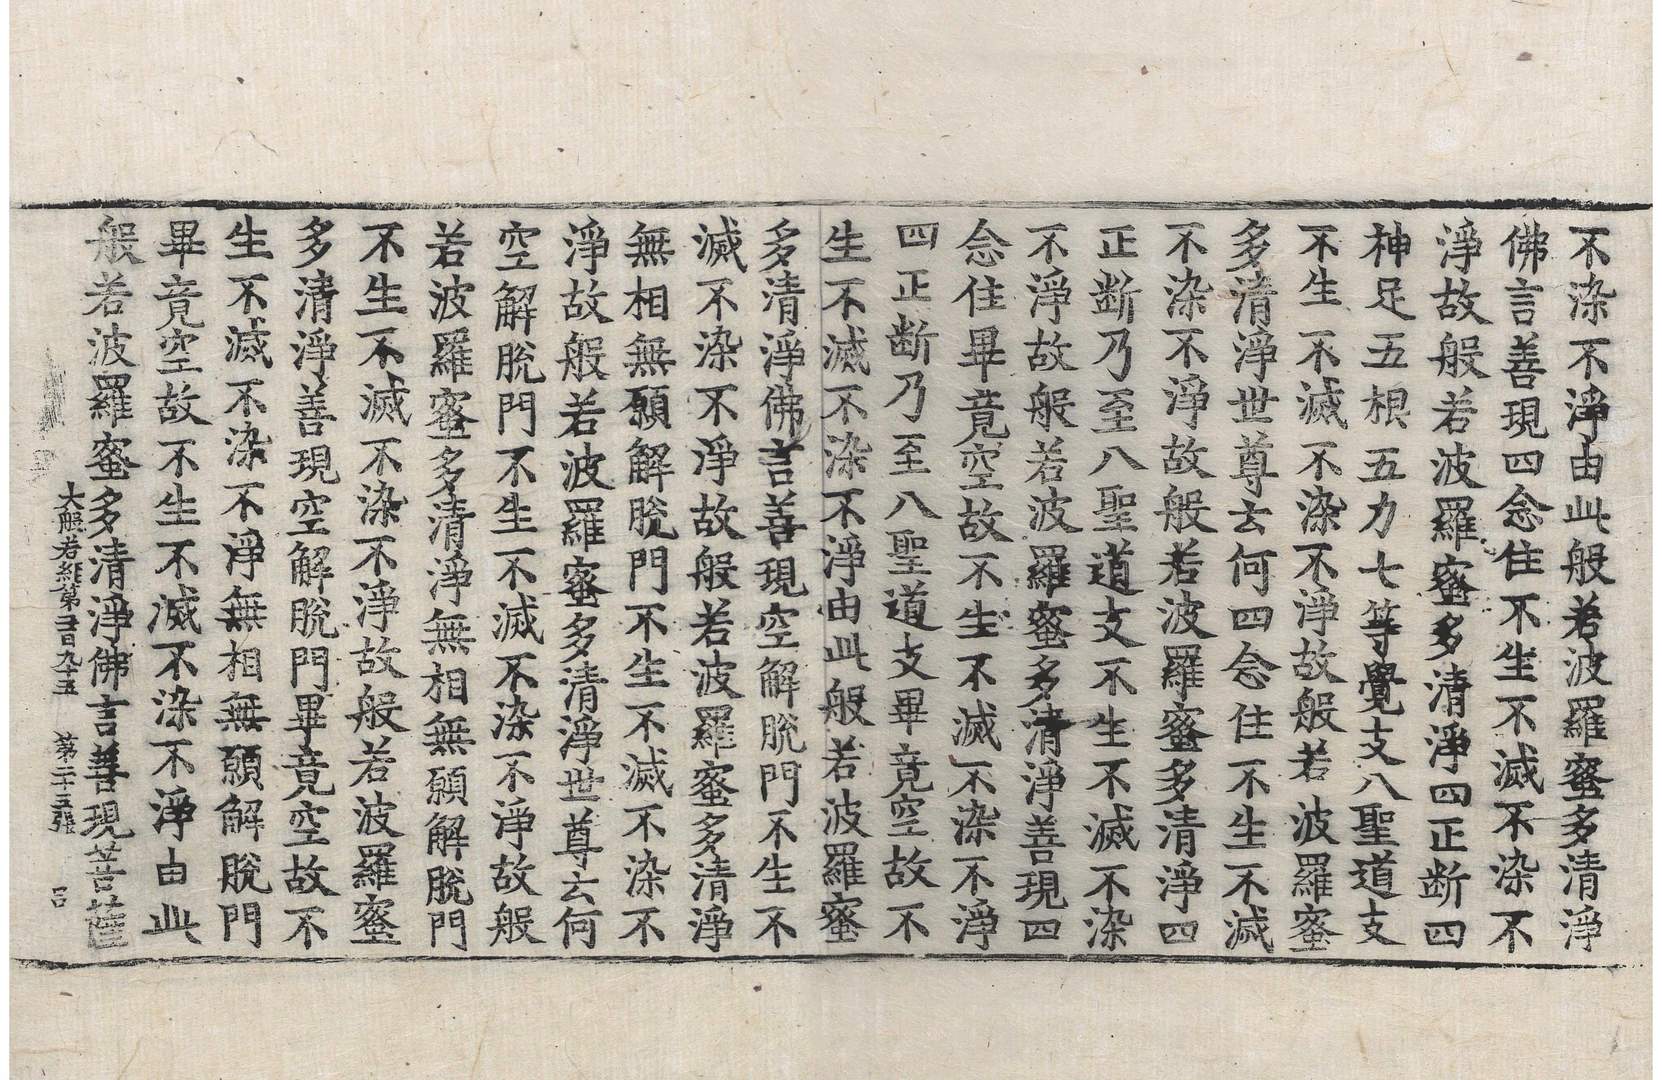 不染不淨由此般若波羅蜜多清淨
佛言善現四念住不生不滅不染不
淨故般若波羅蜜多清淨四正斷四
神足五根五力七等覺支八聖道支
不生不滅不染不淨故般若波羅蜜
多清淨世尊云何四念住不生不滅
不染不淨故般若波羅蜜多清淨四
正斷乃至八聖道支不生不滅不染
不淨故般若波羅蜜多清淨善現四
念住畢竟空故不生不滅不染不淨
四正斷乃至八聖道支畢竟空故不
生不滅不染不淨由此般若波羅蜜
多清淨佛言善現空解脫門不生不
滅不染不淨故般若波羅蜜多清淨
無相無願解脫門不生不滅不染不
淨故般若波羅蜜多清淨世尊云何
空解脫門不生不滅不染不淨故般
若波羅蜜多清淨無相無願解脫門
不生不滅不染不淨故般若波羅蜜
多清淨善現空解脫門畢竟空故不
生不滅不染不淨無相無願解脫門
畢竟空故不生不滅不染不淨由此
般若波羅蜜多清淨佛言善現菩薩
大般若經第二百九十五　第二十三張　呂